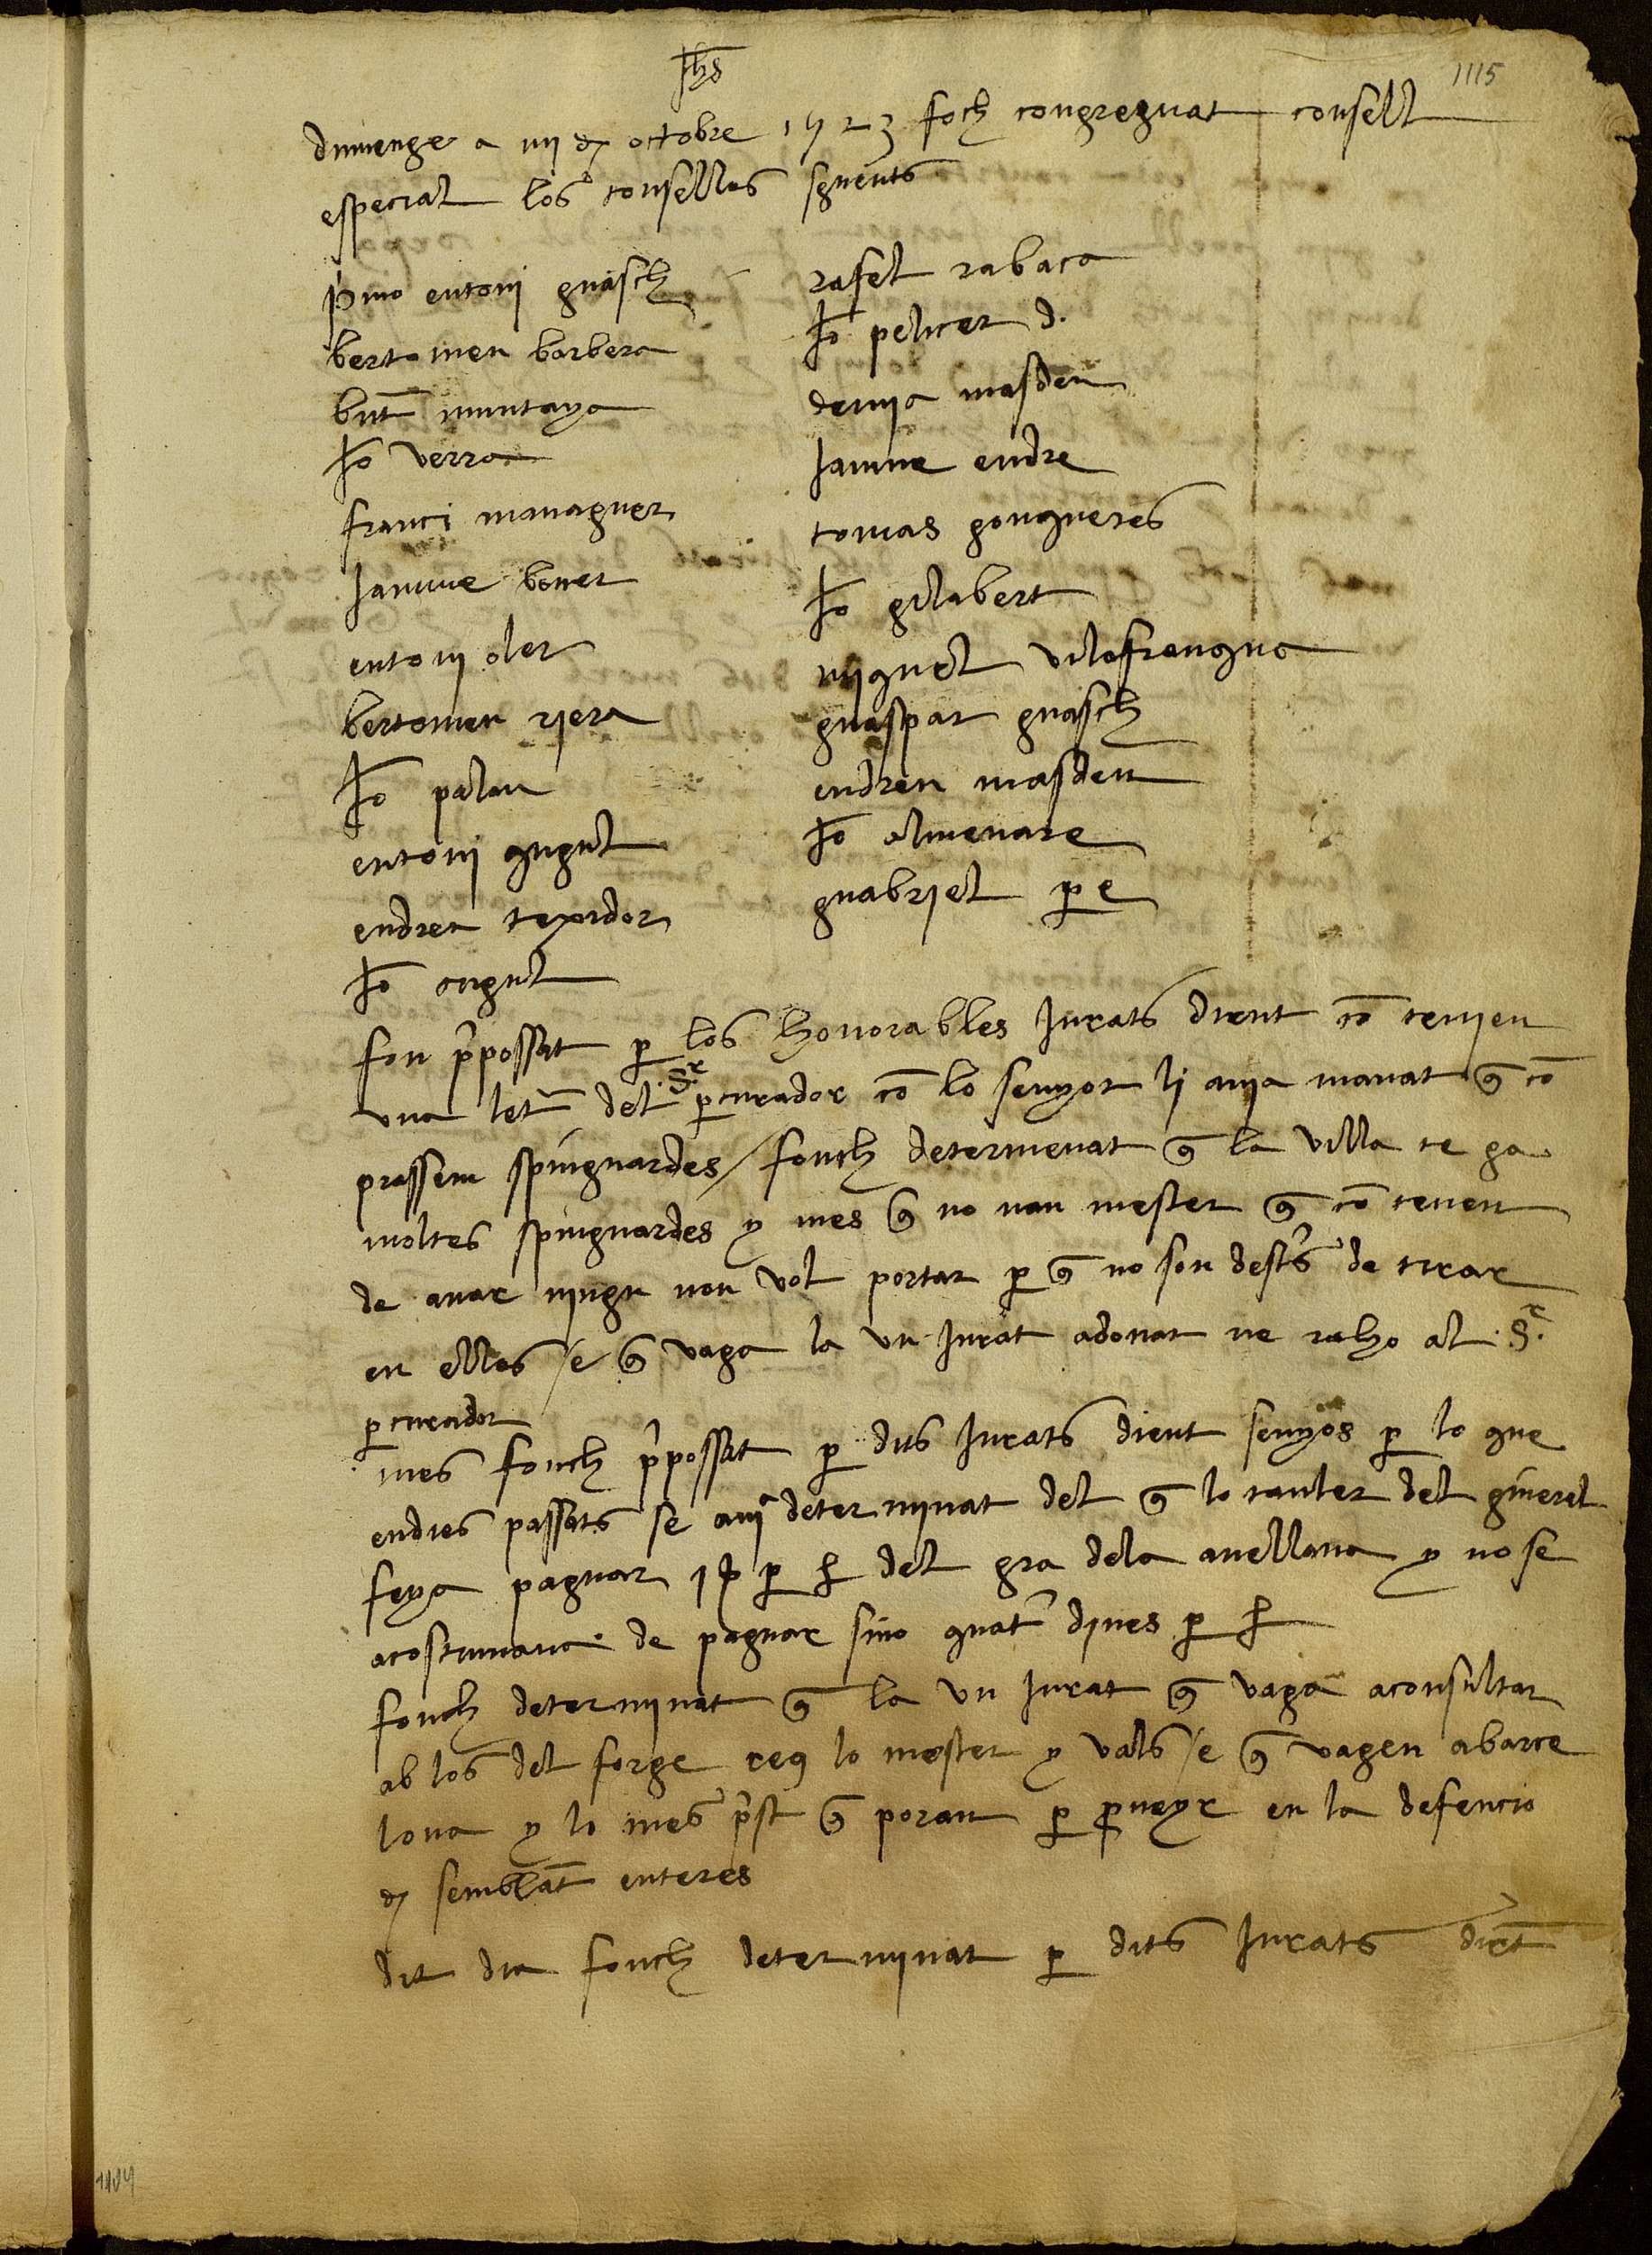 Jhs
1115
dimenge a iiij de octobre 1523 foch congreguat consell
especial los consellers seguents
primo entoni guasch
bertomeu barbera
bnt muntaya
Jo verra
franci managuer
Jaume boner
entoni oler
bertomeu riera
Jo palau
entoni qugul
endreu texidor
Jo cugul
rafel rabaca
Jo pelicer d.
demia masdeu
Jaume endre
tomas gongueres
Jo gilabert
miquel vilafranqua
guaspar guasch
endreu masdeu
Jo almenare
guabriel pere
fon ppossat per los honorables Jurats dient co tenien
una letra del Sr percurador co lo senyor li avia manat q com
prassem spinguardes / fonch determenat q la villa te ga
moltes spinguardes y mes q no nan mester q co tenen
de anar ningu non vol portar per q no son destres de tirar
en elles / e q vaga la un Jurat adonar ne raho al Sr
percurador
mes fonch ppossat per dits Jurats dient senyos per lo que
endies passats se avia determinat del q lo tauler del general
feya paguar 1 per del gra dela avellana y no se
acostumava de paguar sino quatre dines per
fonch determinat q la un Jurat q vaga aconsultar
ab los del forge reus lo mester y vals / e q vagen abarce
lona y lo mes prest q poran per proveyr en la defencio
de semblat enteres
dit dia fonch determinat per dits Jurats dient
1114